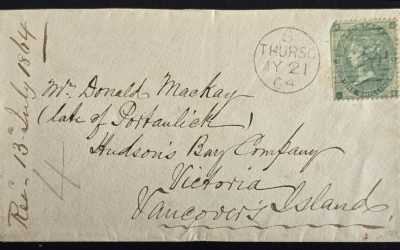 Rec. 13th July 1864
B
THURSO
MY 21
64
Mr. Donald Mackay
(late of Portaulick)
Hudson's Bay Company
Victoria
Vancover's Island
4